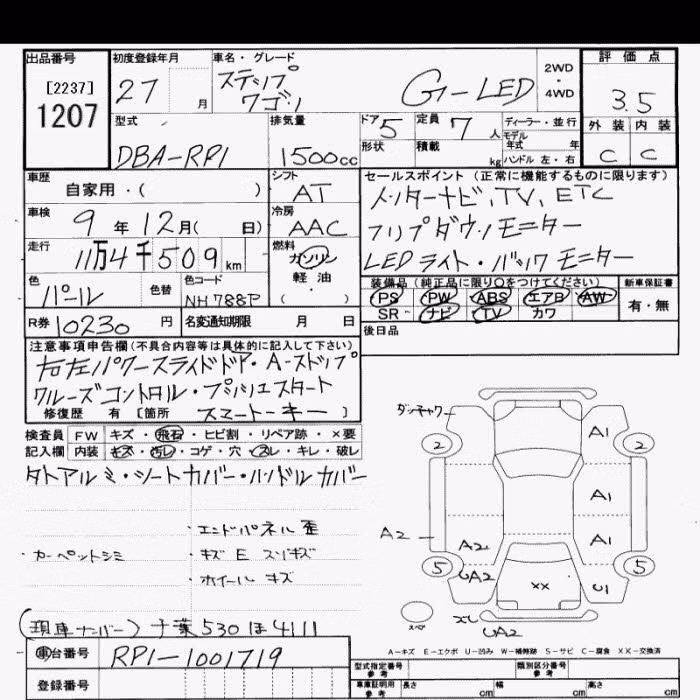 出品番号 初度登録年月 車名・グレード 評価点
[2237] 1207
27 月 ステップワゴン G-LED 2WD・4WD 3.5
型式 排気量 ドア 5 定員 7 人 ディーラー・並行 外装 内装
DBA-RP1 1500cc 形状 積載 kg モデル年式 年 ハンドル 左・右 C C
車歴 自家用・( ) シフト AT セールスポイント(正常に機能するものに限ります)
インターナビ、TV、ETC
車検 9年12月( 日) 冷房 AAC フリップダウンモニター
走行 11万4千509km 燃料 ガソリン 軽油・( ) LEDライト・バックモニター
色 パール 色替 色コード NH788P 装備品(純正品に限り○をつけてください) 新車保証書
PS PW ABS エアB AW 有・無
SR ナビ TV カワ
R券 10230 円 名変通知期限 月 日 後日品
注意事項申告欄(不具合内容等は具体的に記入して下さい)
右左パワースライドドア・A-ストップ
クルーズコントロル・プッシュスタート
修復歴 有 [箇所 スマートーキー ]
検査員 FW キズ・飛石・ヒビ割・リペア跡・×要
記入欄 内装 キズ・汚レ・コゲ・穴・スレ・キレ・破レ
タトアルミ・シートカバー・ハンドルカバー
・エンドパネル歪
・カーペットシミ ・キズ E スリキズ
・ホイールキズ
(現車ナンバー) 千葉530ほ4111
車台番号 RP1-1001719
登録番号
A2 A1 2 2
A1
A2 A2 A1
5 UA2 XX U1 5
スペア スレ UA2
A-キズ E-エクボ U-凹み W-補修跡 S-サビ C-腐食 XX-交換済
型式指定番号 参考 類別区分番号 参考
車庫証明用 参考 長さ cm 幅 cm 高さ cm